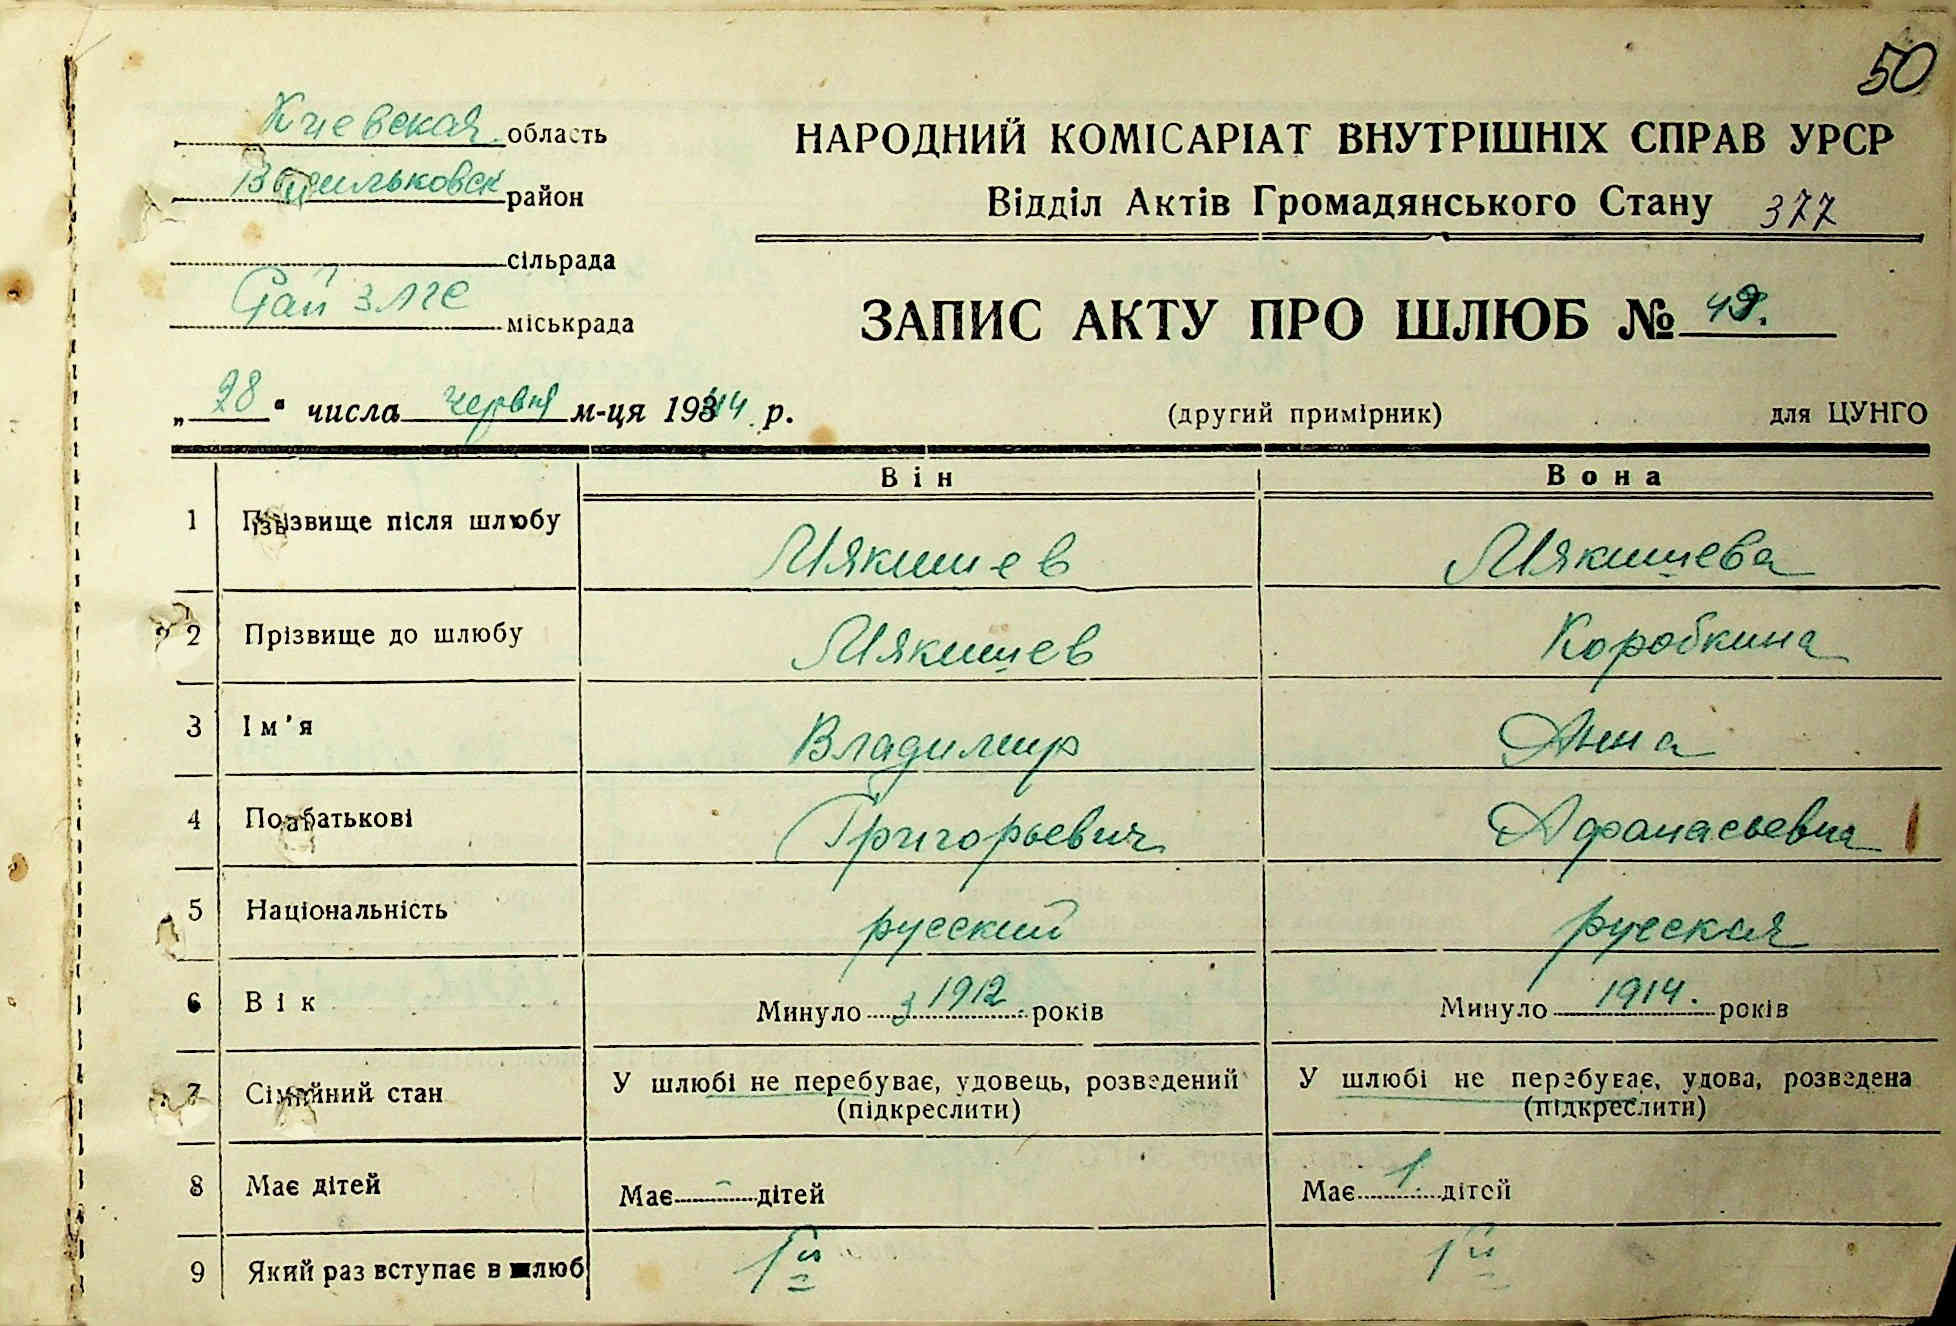 50
Киевская область
Васильковск район
сільрада
Рай ЗАГС міськрада
НАРОДНИЙ КОМІСАРІАТ ВНУТРІШНІХ СПРАВ УРСР
Відділ Актів Громадянського Стану 377
ЗАПИС АКТУ ПРО ШЛЮБ №
„28“ числа червня м-ця 1944 р.
(другий примірник) для ЦУНГО
Він Вона
1 Прізвище після шлюбу Мякишев Мякишева
2 Прізвище до шлюбу Мякишев Коробкина
3 Ім'я Владимир Анна
4 По батькові Григорьевич Афанасьевна
5 Національність русский русская
6 Вік Минуло з 1912 років Минуло 1914. років
7 Сімейний стан У шлюбі не перебуває, удовець, розведений У шлюбі не перебуває, удова, розведена
(підкреслити) (підкреслити)
8 Має дітей Має - дітей Має 1 дітей
9 Який раз вступає в шлюб 1й 1й